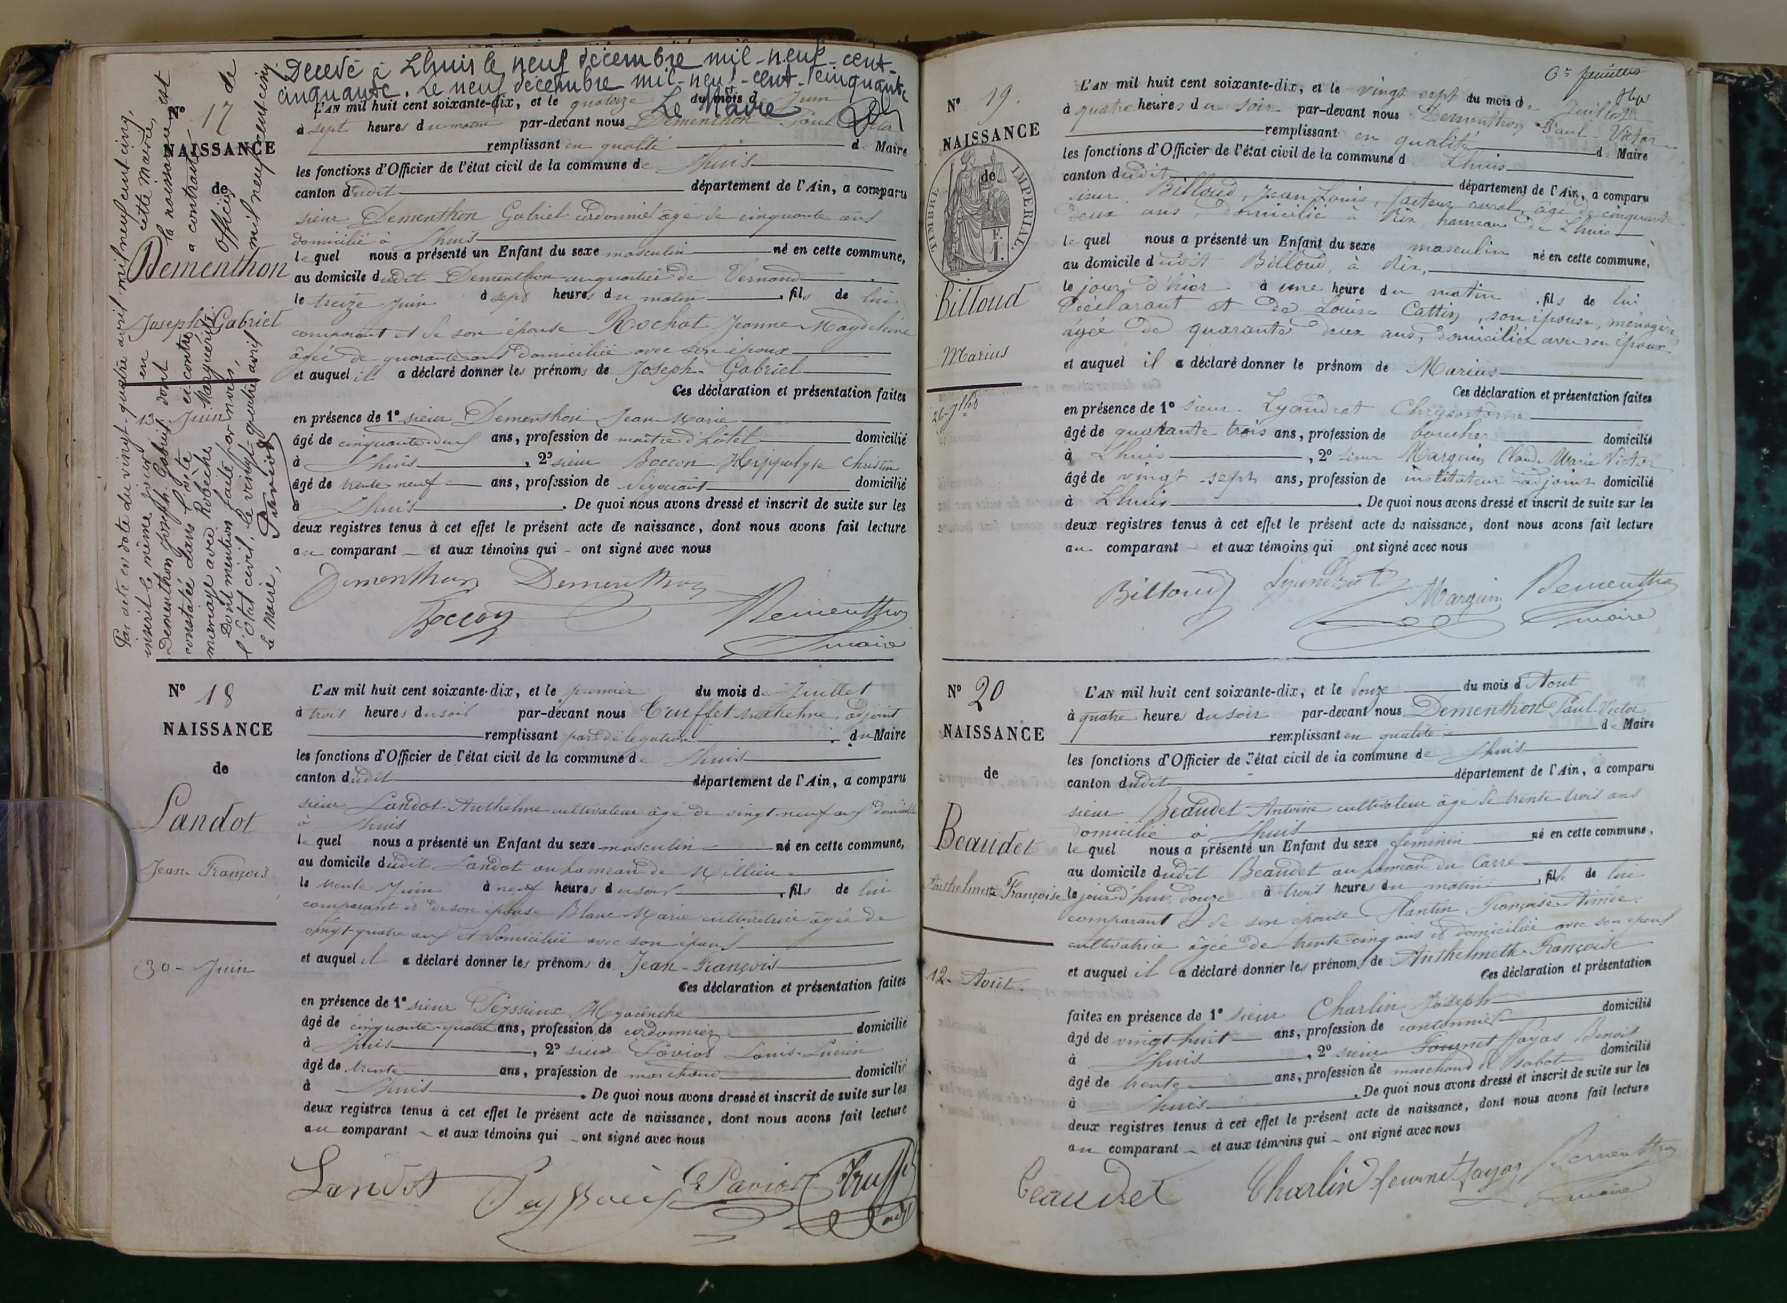 Décédé à Lhuis le neuf décembre mil-neuf-cent-
cinquante. Le neuf décembre mil-neuf-cent-cinquante
Le Maire
Nº 17
NAISSANCE
de
Dementhon
Joseph Gabriel
13 Juin
Par acte en date du vingt-quatre avril mil neuf cent cinq,
inscrit le même jour en cette Mairie,
Dementhon Joseph Gabriel dont la naissance est
constatée dans l'acte ci-contre a contracté
mariage avec Robache Marguerite
Dont mention faite par nous, Officier de
l'État civil le vingt-quatre avril mil neuf cent cinq
Le Maire,
L'AN mil huit cent soixante-dix, et le quatorze du mois de Juin
à sept heures du matin par-devant nous Dementhon Paul Victor
remplissant en qualité de Maire
les fonctions d'Officier de l'état civil de la commune de Lhuis
canton dudit département de l'Ain, a comparu
sieur Dementhon Gabriel cordonnier âgé de cinquante ans
domicilié à Lhuis
lequel nous a présenté un Enfant du sexe masculin né en cette commune,
au domicile dudit Dementhon au quartier de
le treize Juin à sept heures du matin, fils de lui
comparant et de son épouse Rochat Jeanne Magdeleine
âgée de quarante ans domiciliée avec son époux
et auquel il a déclaré donner les prénoms de Joseph-Gabriel
Ces déclaration et présentation faites
en présence de 1º sieur Dementhon Jean Marie
âgé de cinquante-neuf ans, profession de maître d'hôtel domicilié
à Lhuis, 2º sieur Boccon Hippolyte Christin
âgé de trente neuf ans, profession de négociant domicilié
à Lhuis. De quoi nous avons dressé et inscrit de suite sur les
deux registres tenus à cet effet le présent acte de naissance, dont nous avons fait lecture
au comparant et aux témoins qui ont signé avec nous
Dementhon Dementhon
Boccon Dementhon
maire
Nº 18
NAISSANCE
de
Landot
Jean-François
30 - Juin
L'AN mil huit cent soixante-dix, et le premier du mois de Juillet
à trois heures du soir par-devant nous Truffet Anthelme adjoint
remplissant par délégation du Maire
les fonctions d'Officier de l'état civil de la commune de Lhuis
canton dudit département de l'Ain, a comparu
sieur Landot Anthelme cultivateur âgé de vingt-neuf ans domicilié
à Lhuis
lequel nous a présenté un Enfant du sexe masculin né en cette commune,
au domicile dudit Landot au hameau de Millieu
le trente Juin à neuf heures du soir, fils de lui
comparant et de son épouse Blanc Marie cultivatrice âgée de
vingt-quatre ans et domiciliée avec son époux
et auquel il a déclaré donner les prénoms de Jean-François
Ces déclaration et présentation faites
en présence de 1º sieur Peyssieux Hyacinthe
âgé de cinquante-quatre ans, profession de cordonnier domicilié
à Lhuis, 2º sieur Pavior Louis-Lucien
âgé de trente ans, profession de marchand domicilié
à Lhuis. De quoi nous avons dressé et inscrit de suite sur les
deux registres tenus à cet effet le présent acte de naissance, dont nous avons fait lecture
au comparant et aux témoins qui ont signé avec nous
Landot
6e feuillet
Nº 19.
NAISSANCE
de
TIMBRE IMPÉRIAL
Billoud
Marius
26-Jlet
L'AN mil huit cent soixante-dix, et le vingt sept du mois de Juillet
à quatre heures du soir par-devant nous Dementhon Paul-Victor
remplissant en qualité de Maire
les fonctions d'Officier de l'état civil de la commune de Lhuis
canton dudit département de l'Ain, a comparu
sieur Billoud, Jean Louis, facteur rural, âgé de cinquante
deux ans, domicilié à Rix, hameau de Lhuis
lequel nous a présenté un Enfant du sexe masculin né en cette commune,
au domicile dudit Billoud, à Rix,
le jour d'hier à une heure du matin, fils de lui
déclarant et de Louise Cattin, son épouse, ménagère
âgée de quarante deux ans, domiciliée avec son époux
et auquel il a déclaré donner le prénom de Marius
Ces déclaration et présentation faites
en présence de 1º sieur Lyaudrat Chrysostome
âgé de quarante trois ans, profession de boucher domicilié
à Lhuis, 2º sieur Marquin Claude Marie Victor
âgé de vingt-sept ans, profession de instituteur adjoint domicilié
à Lhuis. De quoi nous avons dressé et inscrit de suite sur les
deux registres tenus à cet effet le présent acte de naissance, dont nous avons fait lecture
au comparant et aux témoins qui ont signé avec nous
Billoud Marquin Dementhon
maire
Nº 20
NAISSANCE
de
Beaudet
Anthelmette Françoise
12 - Août.
L'AN mil huit cent soixante-dix, et le douze du mois d'Aout
à quatre heures du soir par-devant nous Dementhon Paul Victor
remplissant en qualité de Maire
les fonctions d'Officier de l'état civil de la commune de Lhuis
canton dudit département de l'Ain, a comparu
sieur Beaudet Antoine cultivateur âgé de trente-trois ans
domicilié à Lhuis
lequel nous a présenté un Enfant du sexe féminin né en cette commune,
au domicile dudit Beaudet au hameau du Carre
le jourd'hui douze à trois heures du matin, fille de lui
comparant et de son épouse Plantin Françoise Aimée
cultivatrice âgée de trente-cinq ans et domiciliée avec son époux
et auquel il a déclaré donner les prénoms de Anthelmette-Françoise
Ces déclaration et présentation
faites en présence de 1º sieur Charlin Joseph domicilié
âgé de vingt-huit ans, profession de cantonnier
à Lhuis, 2º sieur Fournet Fayas Benoit
âgé de trente ans, profession de marchand de Sabots domicilié
à Lhuis. De quoi nous avons dressé et inscrit de suite sur les
deux registres tenus à cet effet le présent acte de naissance, dont nous avons fait lecture
au comparant et aux témoins qui ont signé avec nous
Beaudet Charlin Fournet Fayas Dementhon
maire